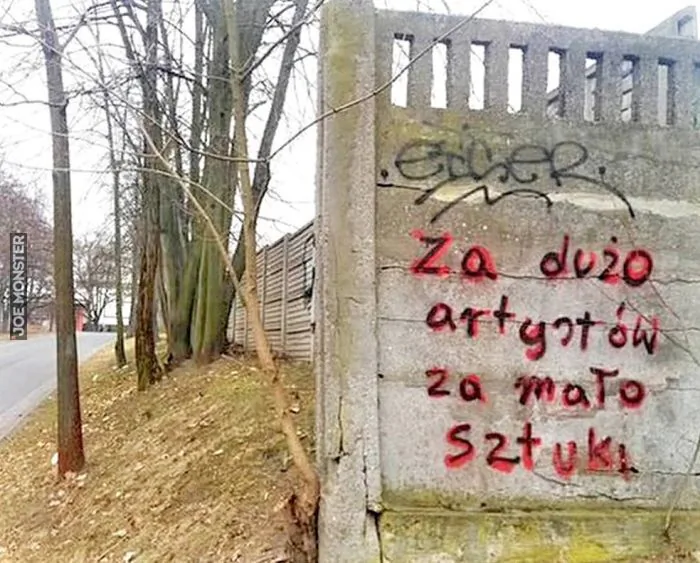 Za dużo
artystów
za mało
sztuki
JOE MONSTER